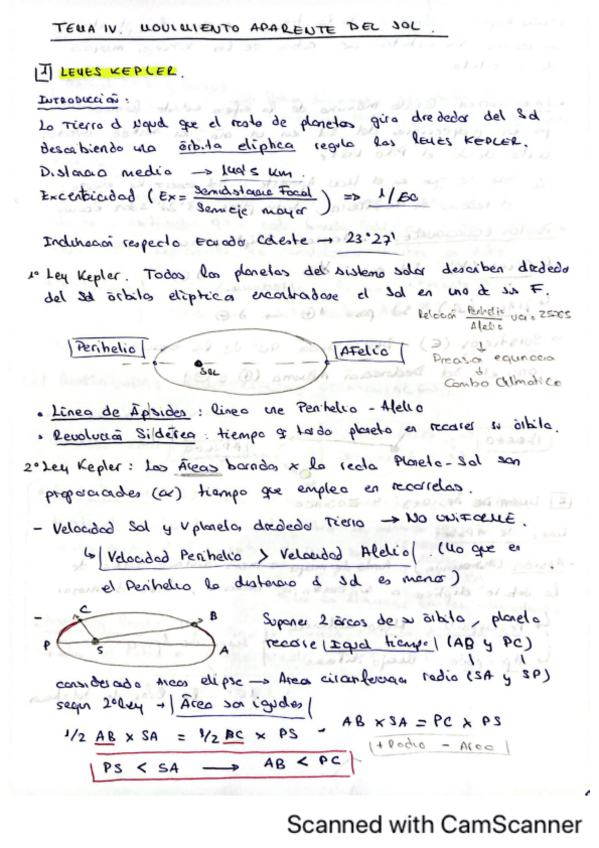 TEMA IV. MOVIMIENTO APARENTE DEL SOL.
1 LEYES KEPLER.
INTRODUCCIÓN:
La Tierra al igual que el resto de planetas gira alrededor del Sol
Describiendo una órbita elíptica regida las LEYES KEPLER.
Distancia media → Km.
Excentricidad (Ex = Semidistancia Focal / Semieje mayor) ⇒ 1/60
Inclinación respecto Ecuador Celeste → 23°27'
1º Ley Kepler. Todos los planetas del sistema solar describen alrededor
del Sol órbita elíptica encontrándose el Sol en uno de sus F.
Relación Perihelio / Afelio
Perihelio
AFelio
SOL
Cambio Climático
• Línea de Ápsides: línea une Perihelio - Afelio
• Revolución Sidérea: tiempo q tarda planeta en recorrer su órbita.
2º Ley Kepler: Las Áreas barridas x la recta Planeta-Sol son
proporcionales (α) tiempo que emplea en recorrerlas.
- Velocidad Sol y V planeta alrededor Tierra → NO UNIFORME.
↳ Velocidad Perihelio > Velocidad Afelio. (Ya que en
el Perihelio la distancia al Sol es menor)
C
B
P
S
A
Suponer 2 arcos de su órbita, planeta
recorre Igual tiempo (AB y PC)
considerado arcos elipse → Area circunferencia radio (SA y SP)
según 2ºley → Área son iguales
1/2 AB x SA = 1/2 PC x PS - AB x SA = PC x PS
+ Radio - Arco
PS < SA → AB < PC
Scanned with CamScanner